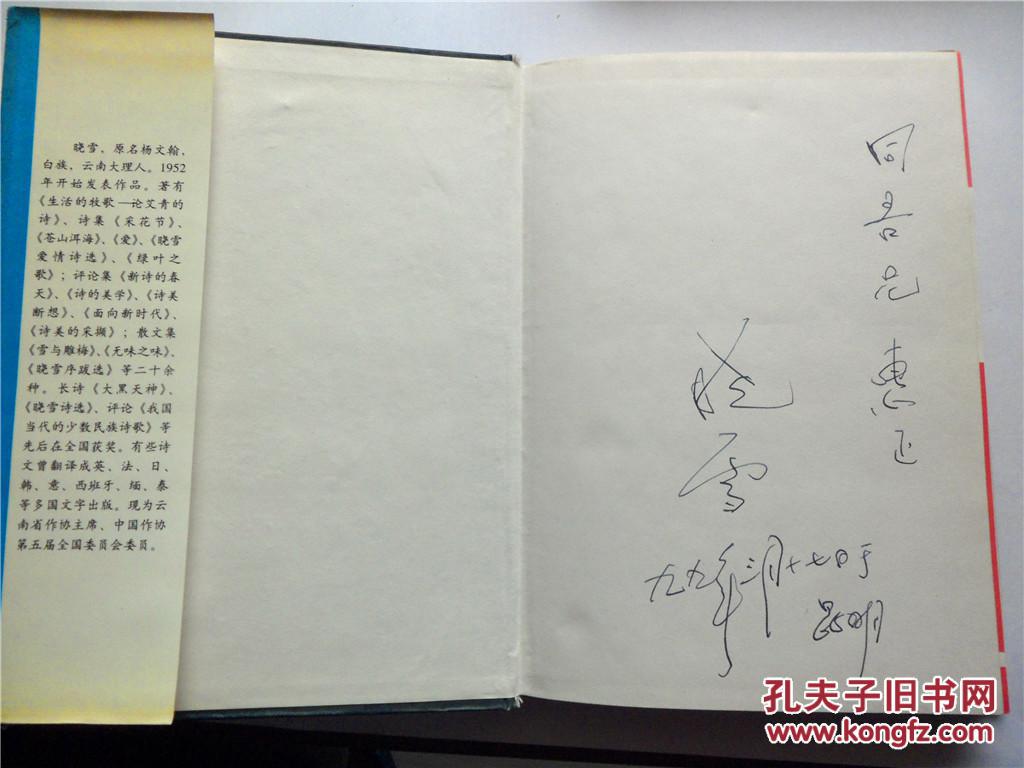 晓雪，原名杨文翰，
白族，云南大理人。1952
年开始发表作品。著有
《生活的牧歌—论艾青的
诗》、诗集《采花节》、
《苍山洱海》、《爱》、《晓雪
爱情诗选》、《绿叶之
歌》；评论集《新诗的春
天》、《诗的美学》、《诗美
断想》、《面向新时代》、
《诗美的采撷》；散文集
《雪与雕梅》、《无味之味》、
《晓雪序跋选》等二十余
种。长诗《大黑天神》、
《晓雪诗选》、评论《我国
当代的少数民族诗歌》等
先后在全国获奖。有些诗
文曾翻译成英、法、日、
韩、意、西班牙、缅、泰
等多国文字出版。现为云
南省作协主席、中国作协
第五届全国委员会委员。
同吾兄惠正
晓雪
九九年三月十七日于
昆明
孔夫子旧书网
www.kongfz.com